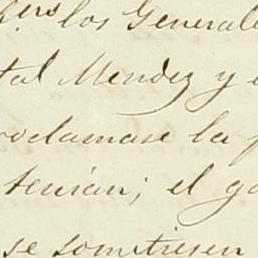 los Generale
tal Mendez y
roclamase la
tenian; el go
se sometiesen